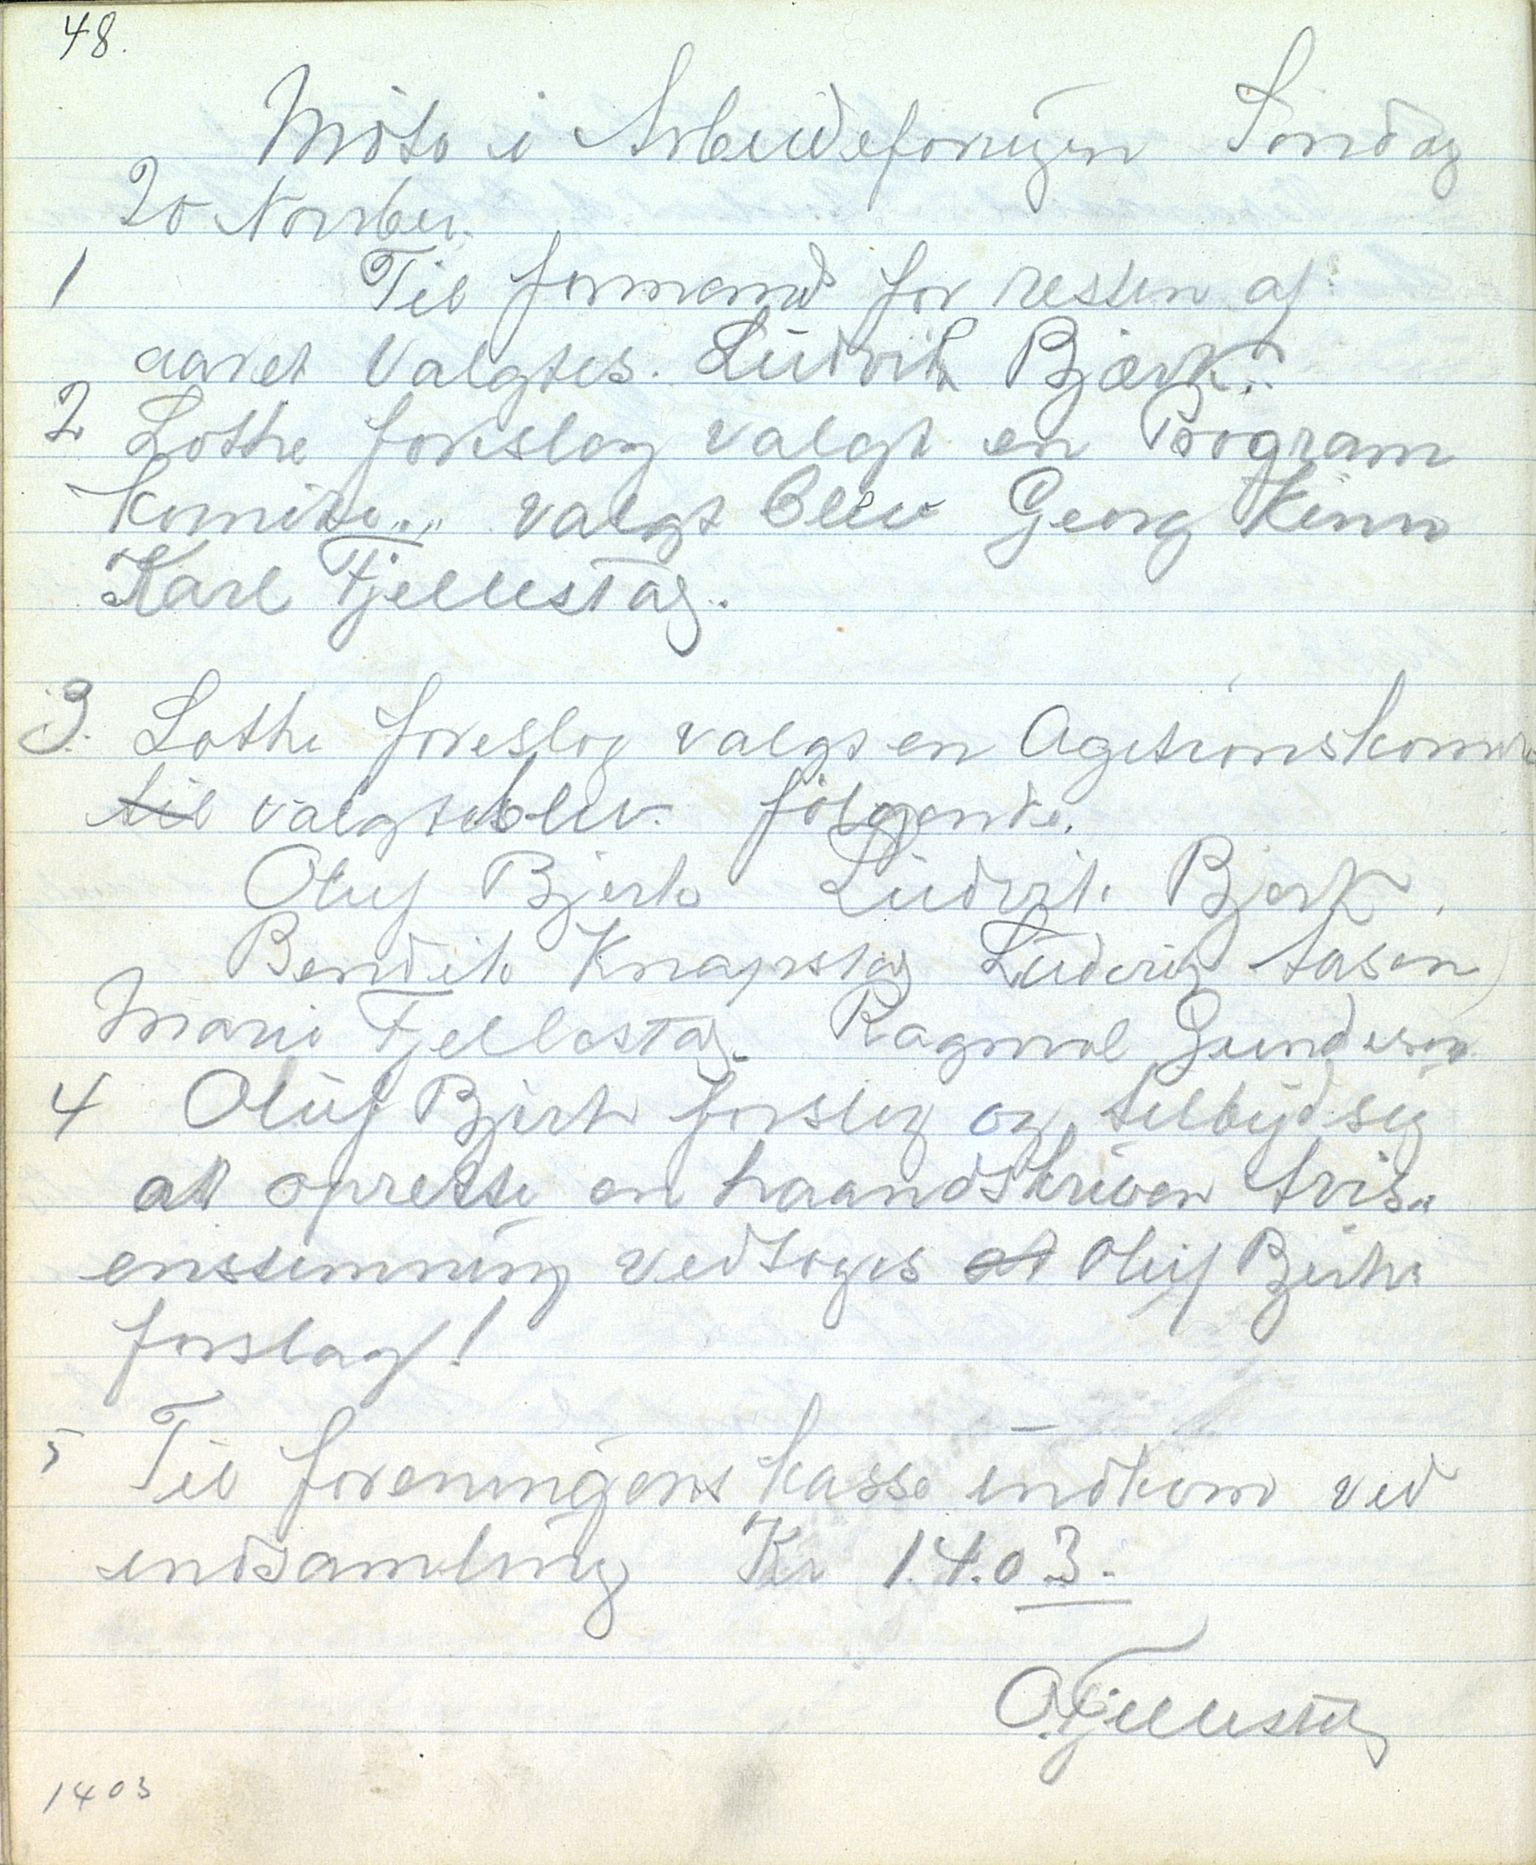 48.
Møte i Arbeideforeigen Søndag
20 Novbr.
1 Til formand for resten af
aaret Valgtes. Ludvik Bjærk.
2 Lothe foreslog valgt en Program
komite.,, valgt blev Georg Kinn
Karl Fjellestag.
3. Lothe foreslog valgt en Agetionskomite
til valgtebblev følgende.
Oluf Bjerk Ludvik Bjerk
Bendik Knapstag Ludvig Aasen
Marie Fjellestag. Ragnvol Gundersen
4 Oluf Bjerk forslog og tilbydseg
att oprette en haandskreven Avis.
enstemning vedtoges at Oluf Bjerks
forslag!
5 Til foreningens kasse indkom ved
indsamling Kr 14.03.
O. Fjellestag
1403